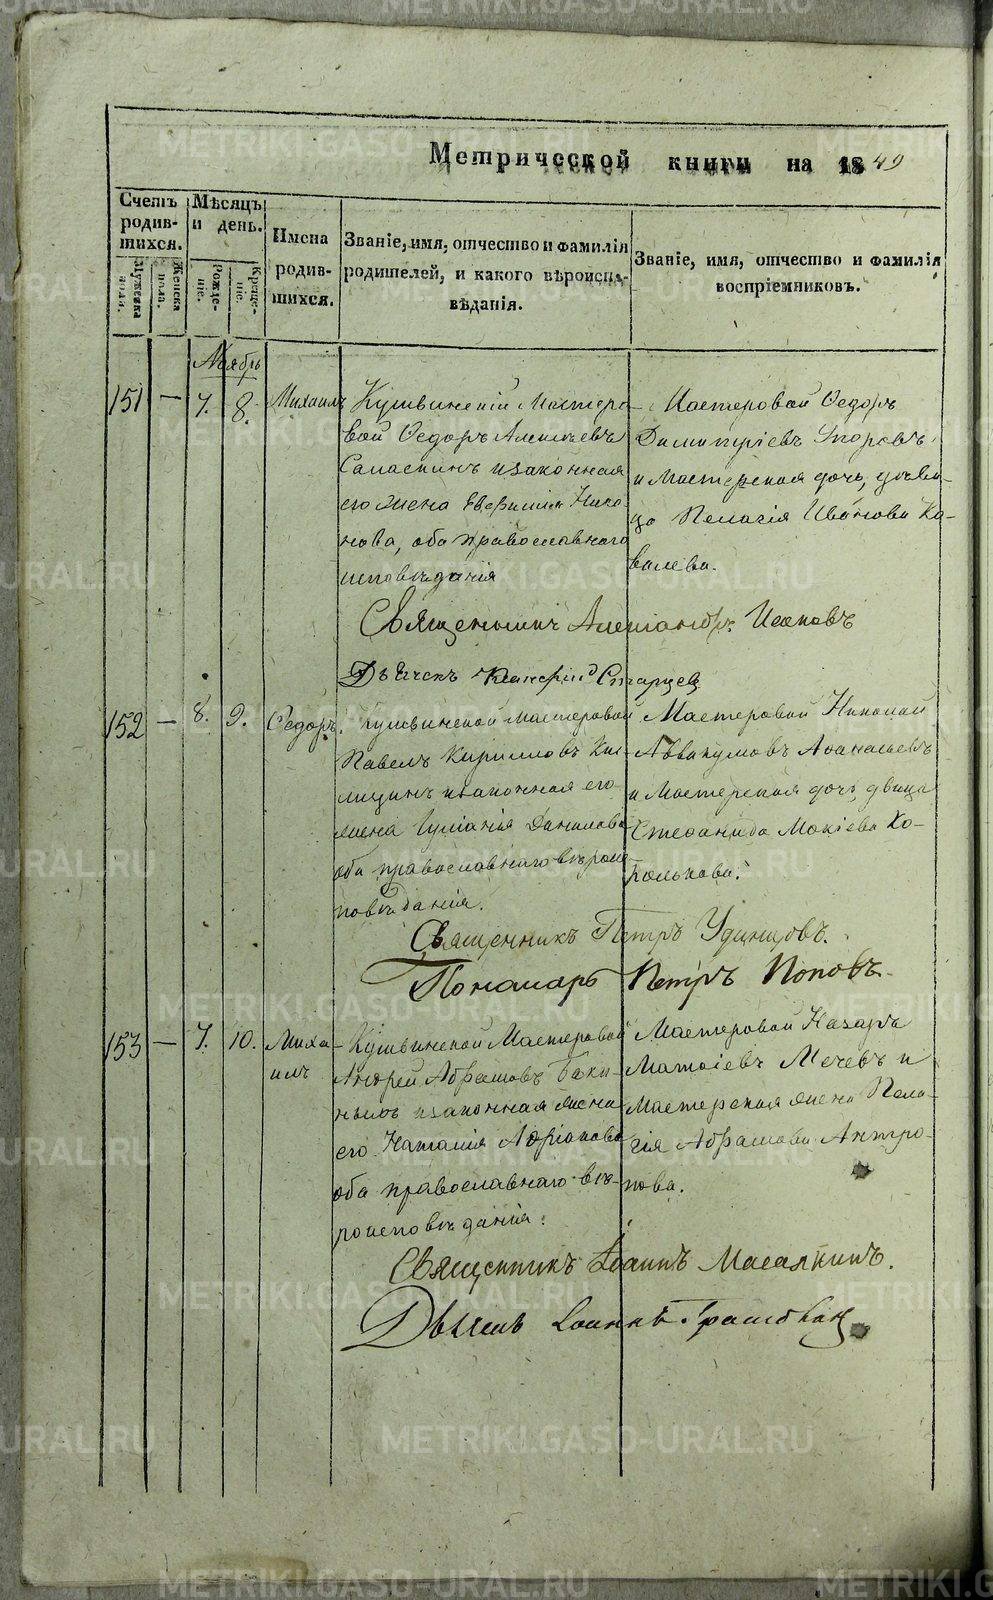 Метрической книги на 1849
Счетъ родив-шихся.
Мужеска пола.
Женска пола.
Мѣсяцъ и день.
Рожде-ніе.
Креще-ніе.
Имена родив-шихся.
Званіе, имя, отчество и фамилія
родителей, и какого вѣроиспо-
вѣданія.
Званіе, имя, отчество и фамилія
воспріемниковъ.
Ноябрь
151 — 7. 8. Михаилъ
Кушвинскій Мастеро-
вой Ѳедоръ Алексѣевъ
и законная
его жена Евфимія Нико-
нова, оба православнаго
исповѣданія
Мастеровой Ѳедоръ
Димитріевъ
и Мастерская дочь, дѣви-
ца Пелагія Иванова Ко-
валева.
Священникъ Александръ
Дьячекъ Старцев
152 — 8. 9. Ѳедоръ.
Кушвинской мастеровой
Павелъ Кирилловъ
и законная его
жена Іуліанія Данилова
оба православнаго вѣроис-
повѣданія.
Мастеровой Николай
Аввакумовъ Аѳанасьевъ
и Мастерская дочь дѣвица
Стефанида Мокіева Ко-
ролькова.
Священникъ Петръ Удинцовъ.
Пономарь Петръ Поповъ
153 — 7. 10. Миха-
илъ
Кушвинской Мастеровой
Андрей Абрамовъ
и законная жена
его Наталія Адріанова
оба православнаго вѣ-
роисповѣданія.
Мастеровой Назаръ
Матѳіевъ Мечевъ и
Мастерская жена Пела-
гія Абрамова Антро-
пова.
Священникъ Іоаннъ Масалкинъ.
Дьячекъ Іоаннъ
METRIKI.GASO-URAL.RU